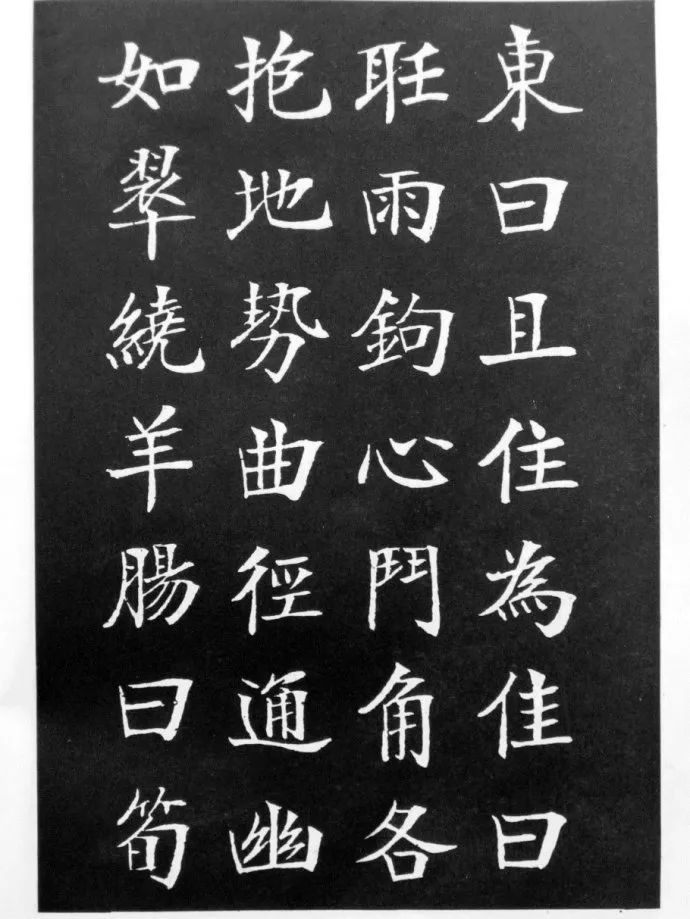 東曰且住為佳曰
雨鉤心鬥角各
抱地勢曲徑通幽
如翠繞羊腸曰筍